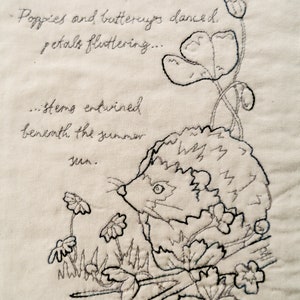 Poppies and buttercups danced,
petals fluttering...
...stems entwined
beneath the summer
sun.